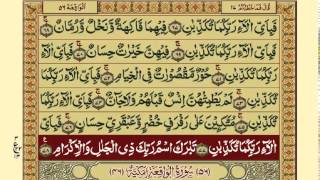 قَالَ فَمَا خَطْبُكُمْ ٢٧ الواقعة ٥٦
فَبِاَیِّ اٰلَآءِ رَبِّكُمَا تُكَذِّبٰنِ فِیْهِمَا فَاكِهَةٌ وَّنَخْلٌ وَّرُمَّانٌ
فَبِاَیِّ اٰلَآءِ رَبِّكُمَا تُكَذِّبٰنِ فِیْهِنَّ خَیْرٰتٌ حِسَانٌ فَبِاَیِّ
اٰلَآءِ رَبِّكُمَا تُكَذِّبٰنِ حُوْرٌ مَّقْصُوْرٰتٌ فِی الْخِیَامِ فَبِاَیِّ اٰلَآءِ
رَبِّكُمَا تُكَذِّبٰنِ لَمْ یَطْمِثْهُنَّ اِنْسٌ قَبْلَهُمْ وَلَا جَآنٌّ فَبِاَیِّ اٰلَآءِ
رَبِّكُمَا تُكَذِّبٰنِ مُتَّكِـِٕیْنَ عَلٰی رَفْرَفٍ خُضْرٍ وَّعَبْقَرِیٍّ حِسَانٍ فَبِاَیِّ
اٰلَآءِ رَبِّكُمَا تُكَذِّبٰنِ تَبٰرَكَ اسْمُ رَبِّكَ ذِی الْجَلٰلِ وَالْاِكْرَامِ
(٥٦) سُوْرَةُ الْوَاقِعَةِ مَكِّیَّةٌ (٤٦)